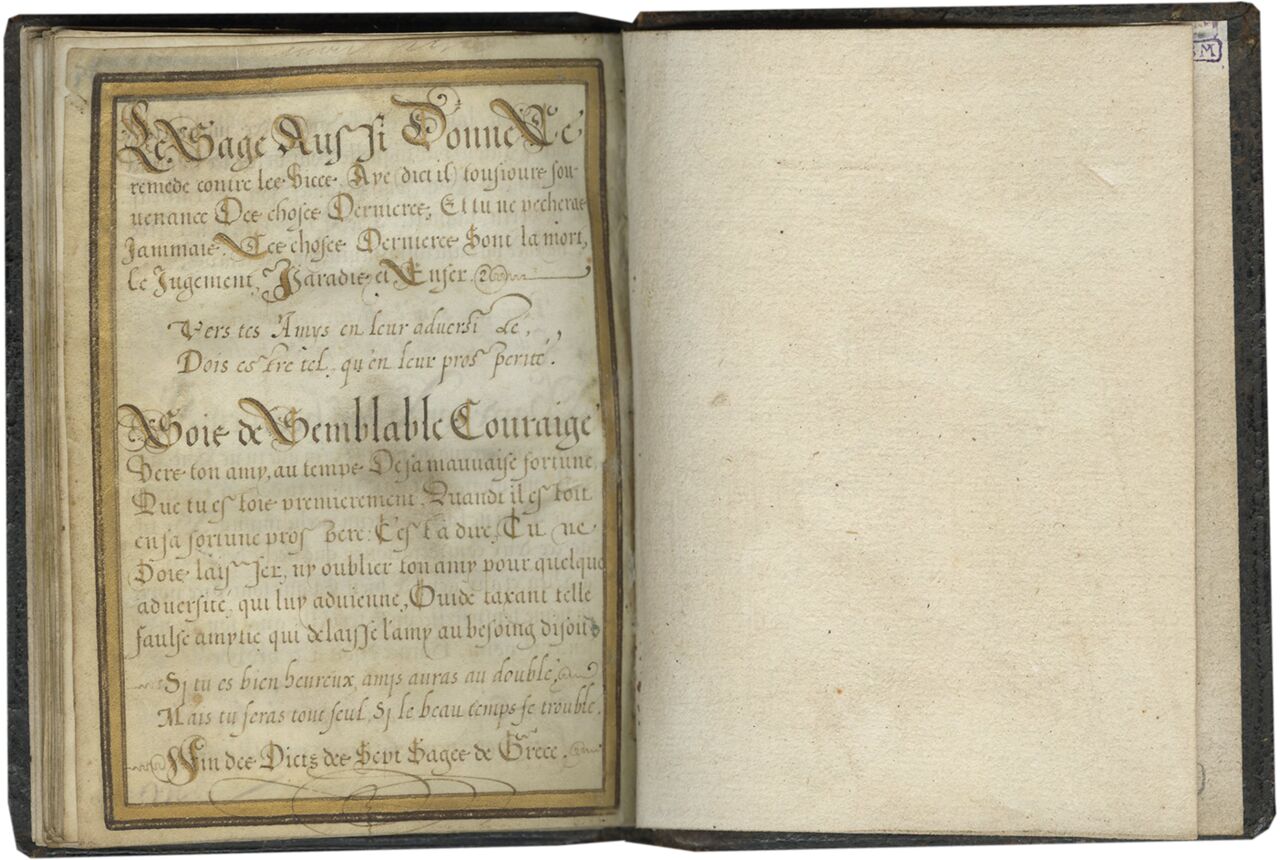 Le Sage Aussi Donne Le
remede contre les Vices. Aye (dict il) tousiours sou-
uenance Des choses Dernieres, Et tu ne pecheras
Jammais. Les choses Dernieres Sont la mort,
le Jugement, Paradis, et Enfer.
Vers tes Amys en leur aduersité,
Dois estre tel, qu'en leur prosperité.
Sois de Semblable Couraige
Vers ton amy, au temps De sa mauuaise fortune,
Que tu estois premierement, Quandt il estoit
en sa fortune prospere: C'est a dire, Tu ne
Dois laysser, ny oublier ton amy pour quelque
aduersité, qui luy aduienne, Ouide taxant telle
faulse amytie qui delaysse l'amy au besoing disoit
Si tu es bien heureux, amis auras au double,
Mais tu seras tout seul, Si le beau temps se trouble.
Fin des Dictz des Sept Sages de Grece.